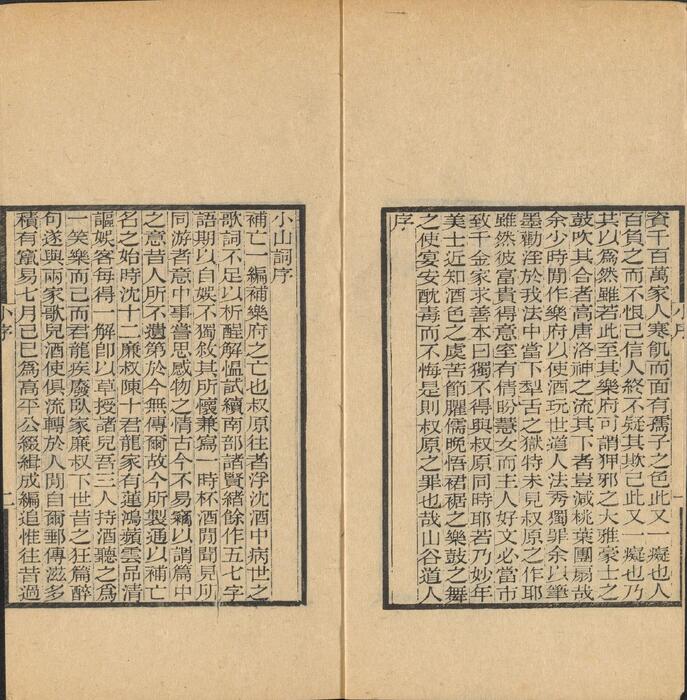 資千百萬家人寒飢而面有孺子之色此又一癡也人
百負之而不恨己信人終不疑其欺己此又一癡也乃
共以爲然雖若此至其樂府可謂狎邪之大雅豪士之
鼓吹其合者高唐洛神之流其下者豈減桃葉團扇哉
余少時閒作樂府以使酒玩世道人法秀獨罪余以筆
墨勸淫於我法中當下犁舌之獄特未見叔原之作耶
雖然彼富貴得意室有倩盼慧女而主人好文必當市
致千金家求善本曰獨不得與叔原同時耶若乃妙年
美士近知酒色之虞苦節臞儒晚悟裙裾之樂鼓之舞
之使宴安酖毒而不悔是則叔原之罪也哉山谷道人
序
小序
一
小山詞序
補亡一編補樂府之亡也叔原往者浮沈酒中病世之
歌詞不足以析酲解慍試續南部諸賢緒餘作五七字
語期以自娛不獨敘其所懷兼寫一時杯酒閒聞見所
同游者意中事嘗思感物之情古今不易竊以謂篇中
之意昔人所不遺第於今無傳爾故今所製通以補亡
名之始時沈十二廉叔陳十君龍家有蓮鴻蘋雲品清
謳娛客每得一解卽以草授諸兒吾三人持酒聽之爲
一笑樂而已而君龍疾廢臥家廉叔下世昔之狂篇醉
句遂與兩家歌兒酒使俱流轉於人閒自爾郵傳滋多
積有竄易七月己巳爲高平公綴緝成編追惟往昔過
小序
二